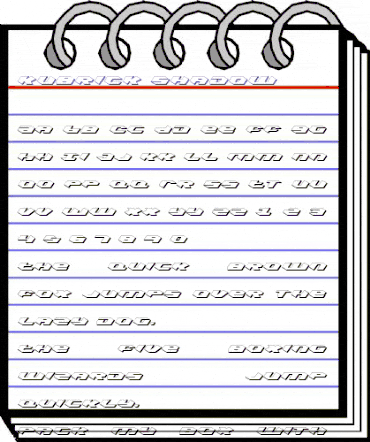 Kubrick Shadow
Aa Bb Cc Dd Ee Ff Gg
Hh Ii Jj Kk Ll Mm Nn
Oo Pp Qq Rr Ss Tt Uu
Vv Ww Xx Yy Zz 1 2 3
4 5 6 7 8 9 0
The quick brown
fox jumps over the
lazy dog.
The five boxing
wizards jump
quickly.
Pack my box with